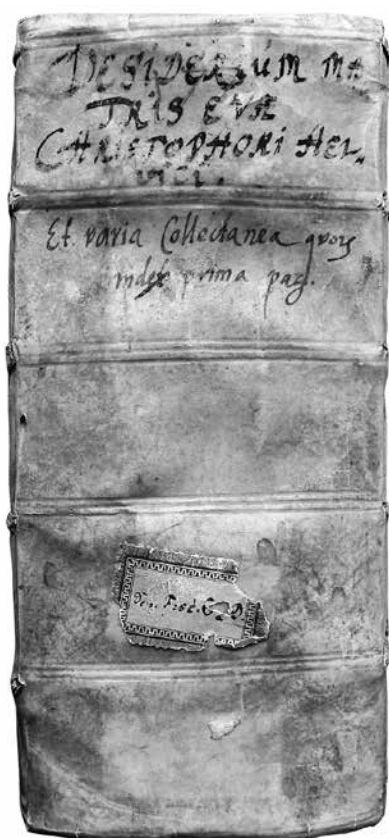 DESIDERIUM MA
TRIS EVÆ
CHRISTOPHORI HEL-
VICI.
Et varia Collectanea quorꝫ
index prima pag.